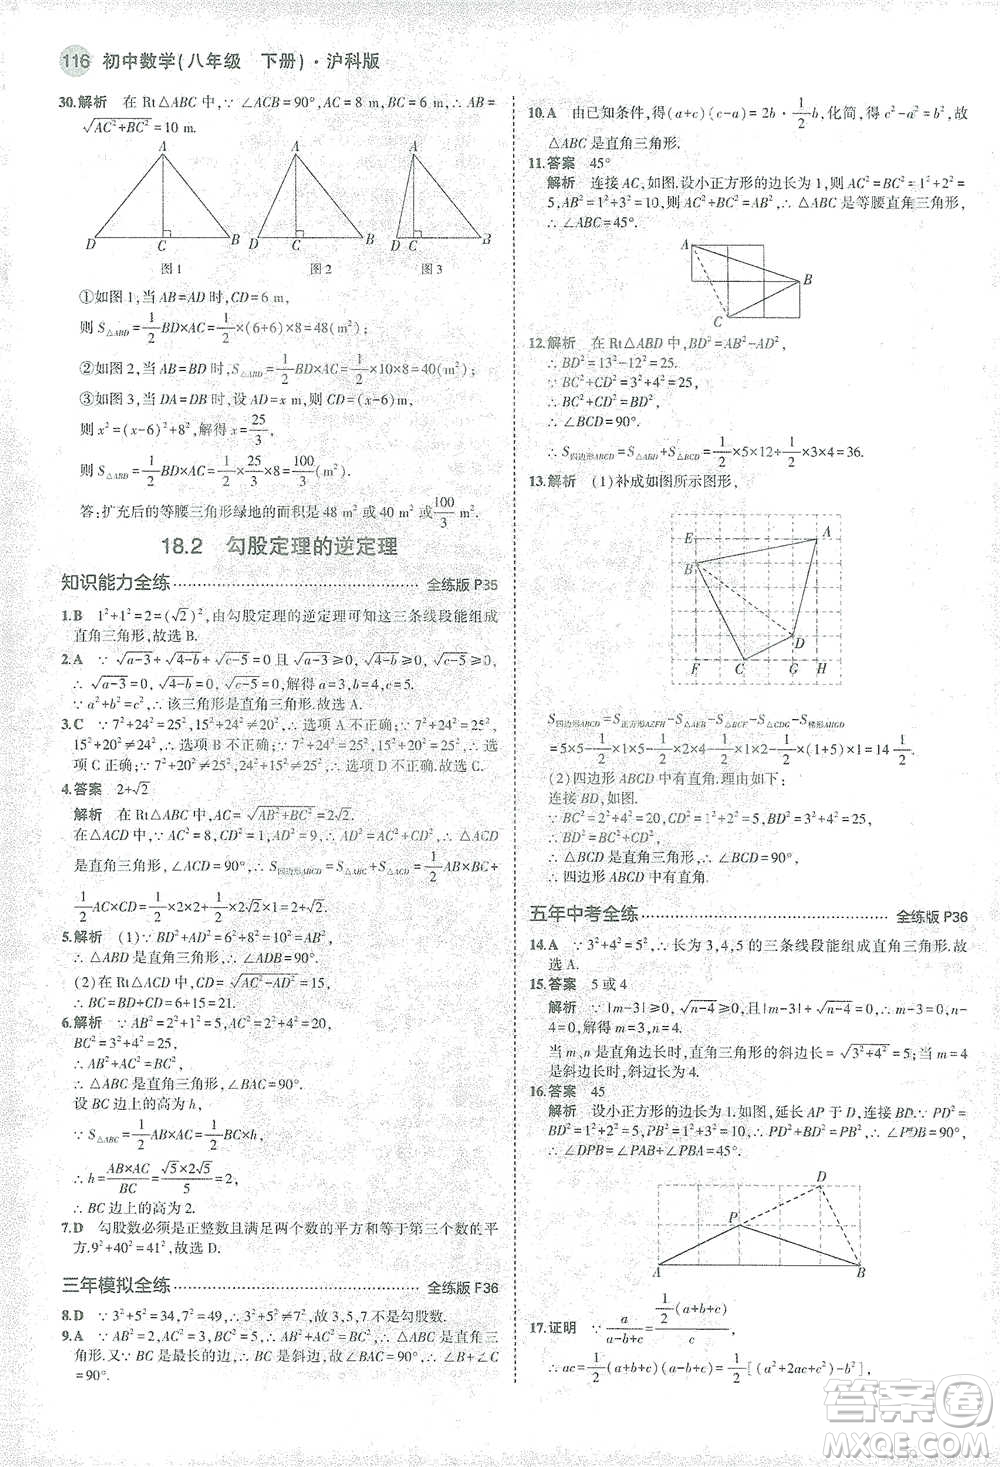 116 初中数学(八年级　下册)·沪科版
30.解析　在 Rt△ABC 中,∵ ∠ACB=90°,AC=8 m,BC=6 m,∴ AB=
√(AC²+BC²)=10 m.
A A A
D C B D C B D C B
图1 图2 图3
①如图 1,当 AB=AD 时,CD=6 m,
则 S△ABD=1/2 BD×AC=1/2×(6+6)×8=48(m²);
②如图 2,当 AB=BD 时,S△ABD=1/2 BD×AC=1/2×10×8=40(m²);
③如图 3,当 DA=DB 时,设 AD=x m,则 CD=(x-6)m,
则 x²=(x-6)²+8²,解得 x=25/3,
则 S△ABD=1/2 BD×AC=1/2×25/3×8=100/3(m²).
答:扩充后的等腰三角形绿地的面积为 48 m² 或 40 m² 或 100/3 m².
18.2　勾股定理的逆定理
知识能力全练 全练版 P35
1.B　1²+1²=2=(√2)²,由勾股定理的逆定理可知这三条线段能组成
直角三角形,故选 B.
2.A　∵ √(a-3)+√(4-b)+√(c-5)=0 且 √(a-3)≥0,√(4-b)≥0,√(c-5)≥0,
∴ √(a-3)=√(4-b)=√(c-5)=0,解得 a=3,b=4,c=5.
∵ a²+b²=c²,∴ 该三角形是直角三角形,故选 A.
3.C　∵ 7²+24²=25²,15²+24²≠20²,∴ 选项 A 不正确;∵ 7²+24²=25²,
15²+24²≠20²,∴ 选项 B 不正确;∵ 7²+24²=25²,15²+20²=25²,∴ 选
项 C 正确;∵ 7²+20²≠25²,15²+24²≠25²,∴ 选项 D 不正确.
4.答案　2+√2
解析　在 Rt△ABC 中,AC=√(AB²+BC²)=2√2.
在△ACD 中,∵ AC²=8,CD²=1,AD²=9,∴ AD²=AC²+CD²,∴ △ACD
是直角三角形,∠ACD=90°,∴ S四边形ABCD=S△ABC+S△ACD=1/2 AB×BC+
1/2 AC×CD=1/2×2×2+1/2×2√2×1=2+√2.
5.解析　(1)∵ BD²+AD²=6²+8²=10²=AB²,
∴ △ABD 是直角三角形,∴ ∠ADB=90°.
(2)在 Rt△ACD 中,CD=√(AC²-AD²)=15,
∴ BC=BD+CD=6+15=21.
6.解析　∵ AB²=1²+2²=5,AC²=2²+4²=20,
BC²=3²+4²=25,
∴ AB²+AC²=BC²,
∴ △ABC 是直角三角形,∠BAC=90°.
设 BC 边上的高为 h,
∵ S△ABC=1/2 AB×AC=1/2 BC×h,
∴ h=AB×AC/BC=√5×2√5/5=2,
∴ BC 边上的高为 2.
7.D　勾股数必须是正整数且满足两个数的平方和等于第三个数的平
方.9²+40²=41²,故选 D.
三年模拟全练 全练版 P36
8.D　∵ 3²+5²=34,7²=49,∴ 3²+5²≠7²,故 3,5,7 不是勾股数.
9.A　∵ AB²=2,AC²=3,BC²=5,∴ AB²+AC²=BC²,∴ △ABC 是直角三
角形.又∵ BC 是最长的边,∴ BC 是斜边,故∠BAC=90°,∴ ∠B+∠C
=90°.
10.A　由已知条件,得(a+c)(c-a)=2b·1/2 b,化简,得 c²-a²=b²,故
△ABC 是直角三角形.
11.答案　45°
解析　连接 AC,如图.设小正方形的边长为 1,则 AC²=BC²=1²+2²=
5,AB²=1²+3²=10,则 AC²+BC²=AB²,∴ △ABC 是等腰直角三角形,
∴ ∠ABC=45°.
A B C
12.解析　在 Rt△ABD 中,BD²=AB²-AD²,
∴ BD²=13²-12²=25.
∵ BC²+CD²=3²+4²=25,
∴ BC²+CD²=BD²,
∴ ∠BCD=90°.
∴ S四边形ABCD=S△ABD+S△BCD=1/2×5×12+1/2×3×4=36.
13.解析　(1)补成如图所示图形,
E A
B
D
F C G H
S四边形ABCD=S正方形AEFH-S△AEB-S△BCF-S△CDG-S梯形ADGH
=5×5-1/2×1×5-1/2×2×4-1/2×2×1-1/2×(1+5)×1=14 1/2.
(2)四边形 ABCD 中有直角.理由如下:
连接 BD,如图.
∵ BC²=2²+4²=20,CD²=1²+2²=5,BD²=3²+4²=25,
∴ BD²=BC²+CD²,
∴ △BCD 是直角三角形,∠BCD=90°,
∴ 四边形 ABCD 中有直角.
五年中考全练 全练版 P36
14.A　∵ 3²+4²=5²,∴ 长为 3,4,5 的三条线段能组成直角三角形.故
选 A.
15.答案　5 或 4
解析　∵ |m-3|≥0,√(n-4)≥0,且|m-3|+√(n-4)=0,∴ m-3=0,n-
4=0,解得 m=3,n=4.
当 m,n 是直角边长时,直角三角形的斜边长=√(3²+4²)=5;当 n=4
是斜边长时,斜边长为 4.
16.答案　45
解析　设小正方形的边长为 1.如图,延长 AP 于 D,连接 BD.∵ PD²=
BD²=1+2²=5,PB²=1+3²=10,∴ PD²+BD²=PB²,∴ ∠PDB=90°,
∴ ∠DPB=∠PAB+∠PBA=45°.
D
P
A B
17.证明　∵ a/(a-b+c)=1/2(a+b+c)/c,
∴ ac=1/2(a+b+c)(a-b+c)=1/2[(a²+2ac+c²)-b²],
答案圈
MXQE.COM